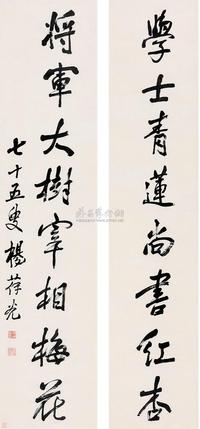 學士青蓮尚書紅杏
將軍大樹宰相梅花
七十五叟楊葆光